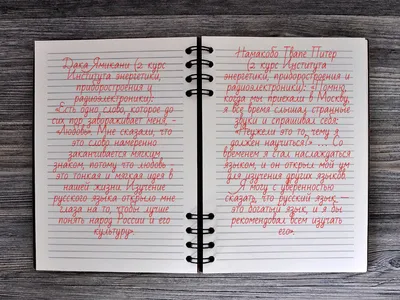 Дака Ямикани (2 курс
Института энергетики,
приборостроения и
радиоэлектроники):
«Есть одно слово, которое до
сих пор завораживает меня, -
«Любовь». Мне сказали, что
это слово намеренно
заканчивается мягким
знаком, потому что любовь –
это тонкая и мягкая идея в
нашей жизни. Изучение
русского языка открыло мне
глаза на то, чтобы лучше
понять народ России и его
культуру».
Намакобо Гвапе Питер
(2 курс Института
энергетики, приборостроения и
радиоэлектроники): «Помню,
когда мы приехали в Москву,
я все время слышал странные
звуки и спрашивал себя:
«Неужели это то, чему я
должен научиться?» ... Со
временем я стал наслаждаться
языком, и он открыл мой ум
для изучения других языков.
Я могу с уверенностью
сказать, что русский язык –
это богатый язык, и я бы
рекомендовал всем изучать
его».